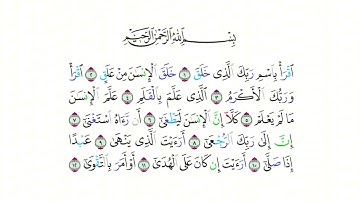 بِسْمِ اللَّهِ الرَّحْمَٰنِ الرَّحِيمِ
اقْرَأْ بِاسْمِ رَبِّكَ الَّذِي خَلَقَ ١ خَلَقَ الْإِنْسَٰنَ مِنْ عَلَقٍ ٢ اقْرَأْ
وَرَبُّكَ الْأَكْرَمُ ٣ الَّذِي عَلَّمَ بِالْقَلَمِ ٤ عَلَّمَ الْإِنْسَٰنَ
مَا لَمْ يَعْلَمْ ٥ كَلَّا إِنَّ الْإِنْسَٰنَ لَيَطْغَىٰ ٦ أَنْ رَّءَاهُ اسْتَغْنَىٰ ٧
إِنَّ إِلَىٰ رَبِّكَ الرُّجْعَىٰ ٨ أَرَءَيْتَ الَّذِي يَنْهَىٰ ٩ عَبْدًا
إِذَا صَلَّىٰ ١٠ أَرَءَيْتَ إِنْ كَانَ عَلَى الْهُدَىٰ ١١ أَوْ أَمَرَ بِالتَّقْوَىٰ ١٢